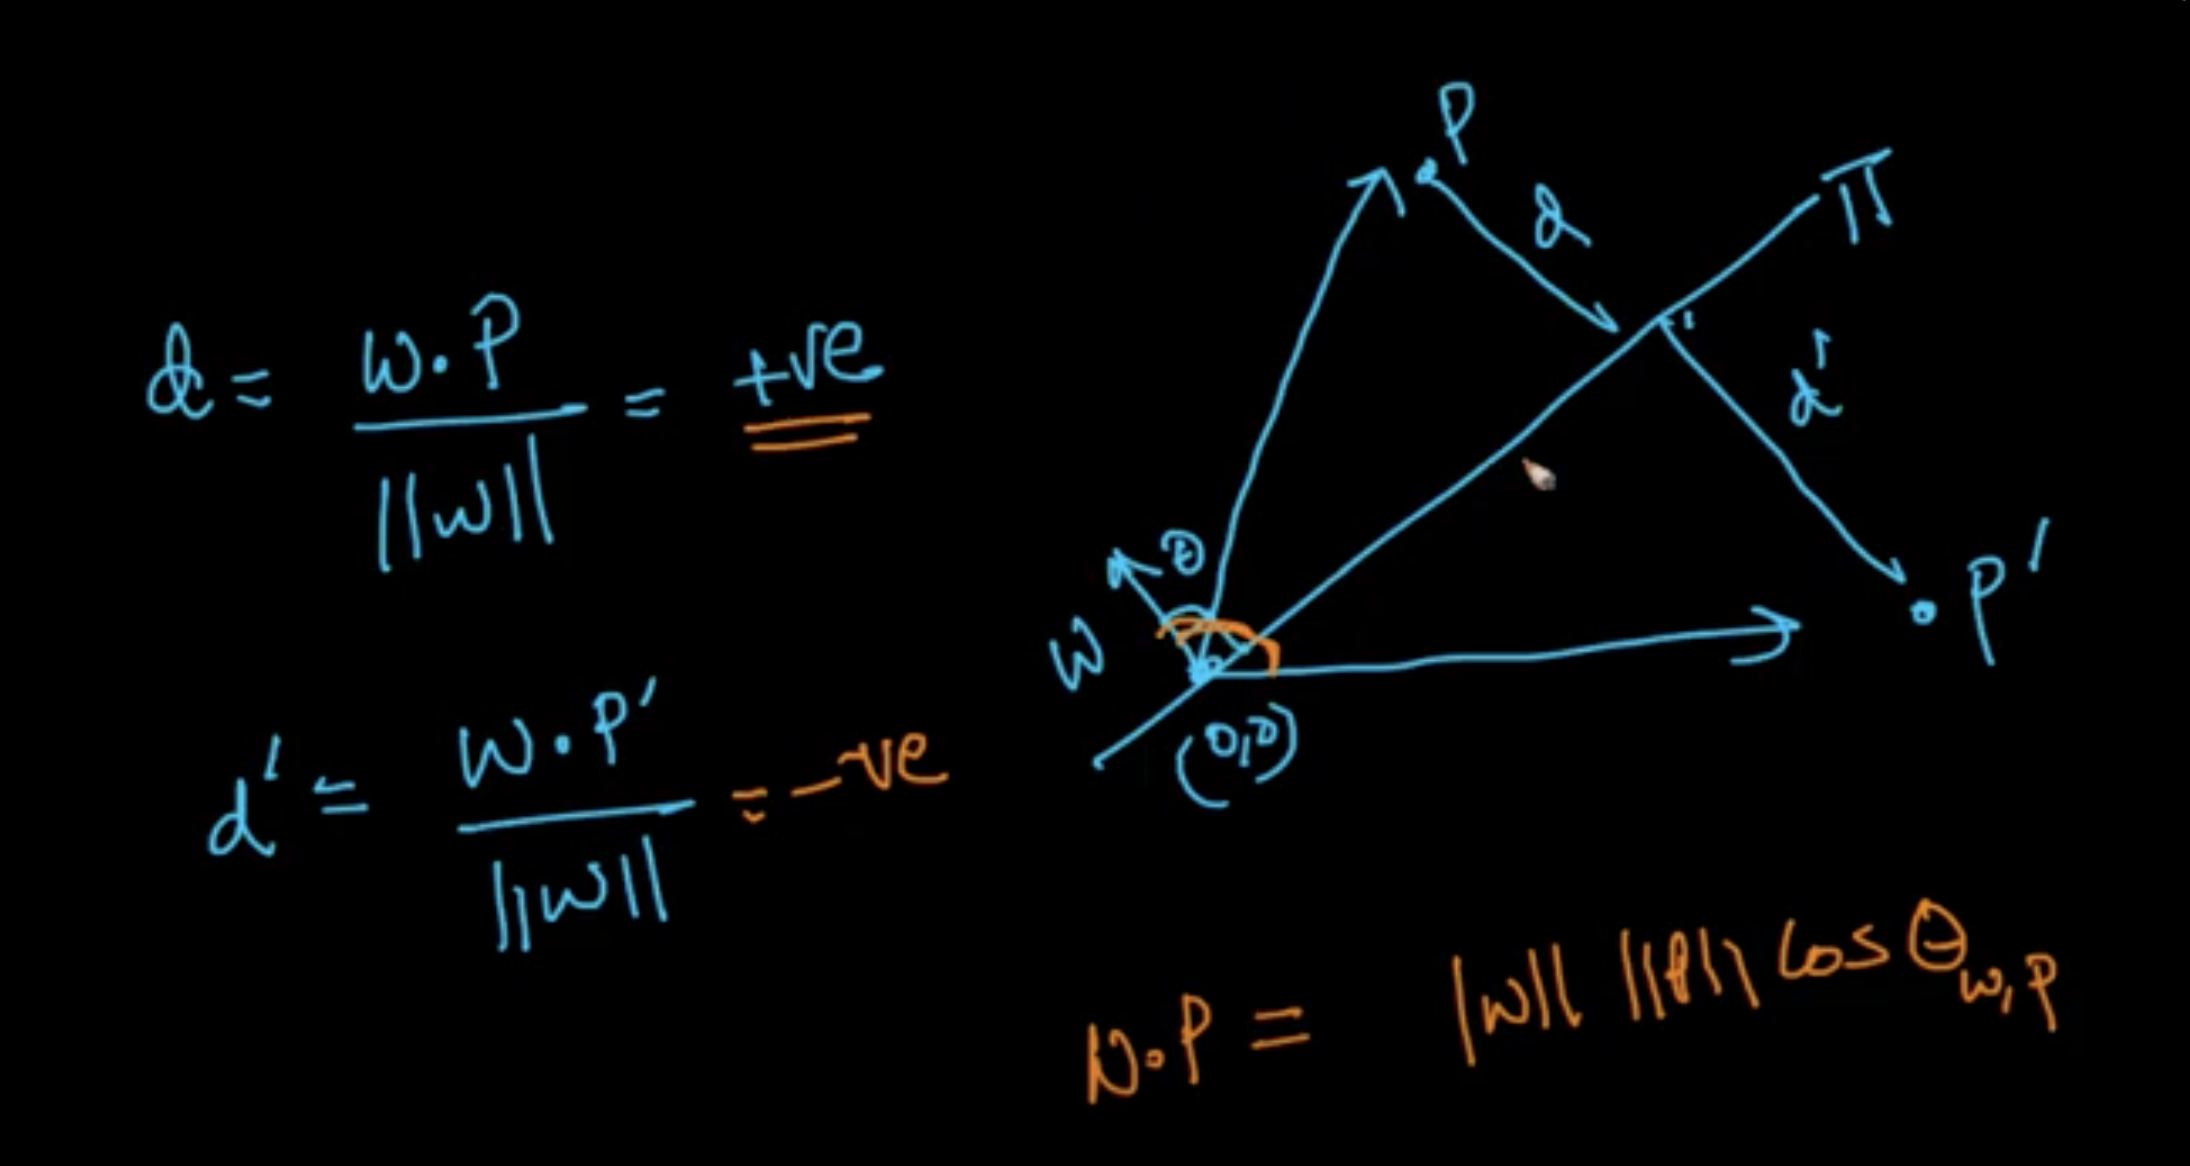 d = w.P / ||w|| = +ve
d' = w.P' / ||w|| = -ve
P
d
π
d'
P'
θ
w
(0,0)
w.P = ||w|| ||P|| cos θ w,P